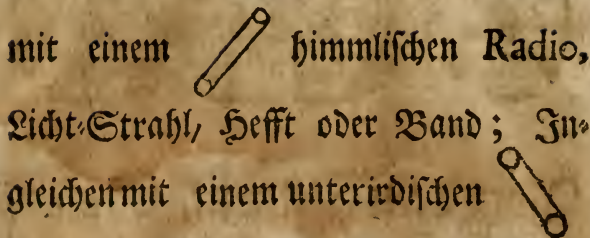 mit einem himmlischen Radio,
Licht-Strahl/ Hefft oder Band; In-
gleichen mit einem unterirdischen